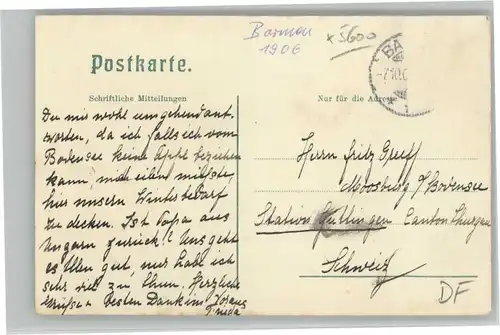 Barmen
1906
x 5600
Postkarte.
BA
-7.10.0
Schriftliche Mitteilungen
Nur für die Adresse
Du mir wohl umgehend ant-
worten, da ich falls ich vom
Bodensee keine Äpfel beziehen
kann, mich eilen müsste,
hier unsern Winterbedarf
zu decken. Ist Papa aus
Ungarn zurück? Uns geht
es Allen gut, nur habe ich
sehr viel zu thun. Herzliche
Grüße u. besten Dank im Voraus
Herrn Fritz
Moosburg a/Bodensee
Station Güttingen Canton Thurgau
Schweiz
DF